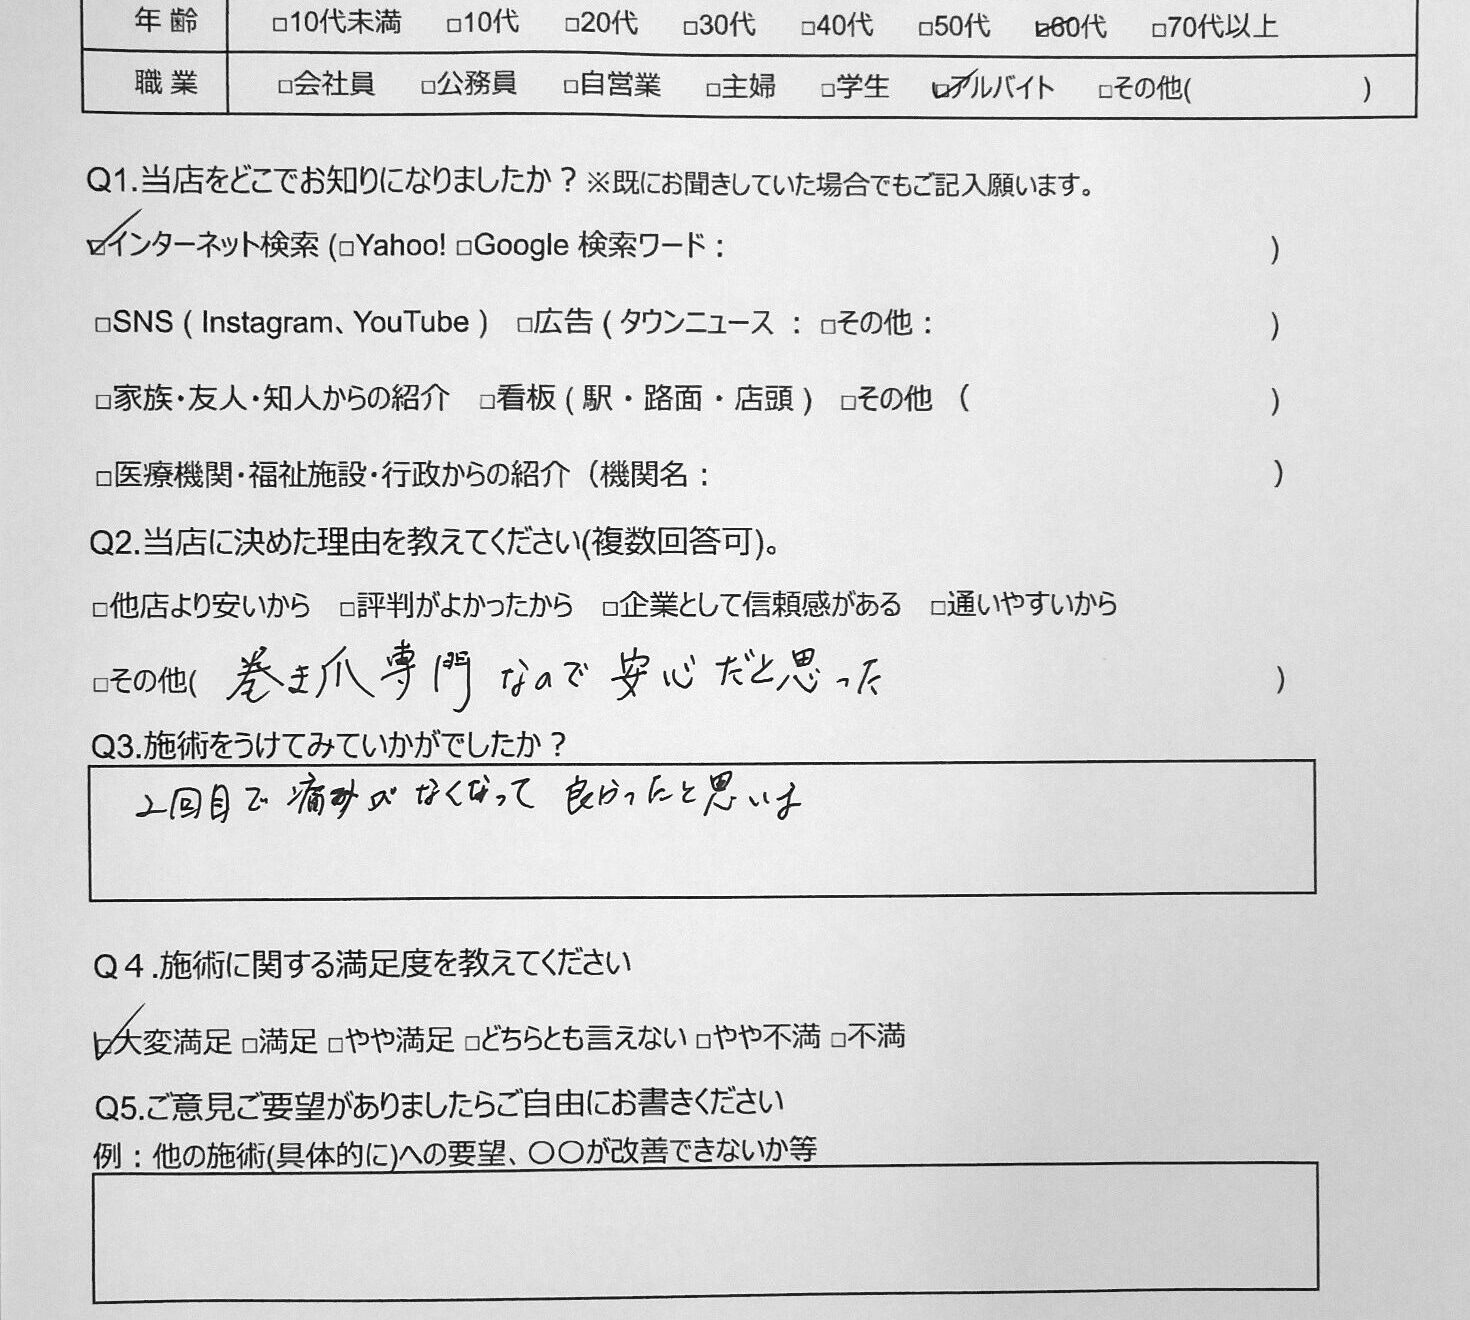 年齢 □10代未満 □10代 □20代 □30代 □40代 □50代 ☑60代 □70代以上
職業 □会社員 □公務員 □自営業 □主婦 □学生 ☑アルバイト □その他( )
Q1.当店をどこでお知りになりましたか？※既にお聞きしていた場合でもご記入願います。
☑インターネット検索 (□Yahoo! □Google 検索ワード： )
□SNS ( Instagram、YouTube ) □広告 ( タウンニュース ： □その他： )
□家族・友人・知人からの紹介 □看板 ( 駅・路面・店頭 ) □その他 ( )
□医療機関・福祉施設・行政からの紹介（機関名： )
Q2.当店に決めた理由を教えてください(複数回答可)。
□他店より安いから □評判がよかったから □企業として信頼感がある □通いやすいから
□その他( 巻き爪専門なので安心だと思った )
Q3.施術をうけてみていかがでしたか？
2回目で痛みがなくなって良かったと思いま
Q４.施術に関する満足度を教えてください
☑大変満足 □満足 □やや満足 □どちらとも言えない □やや不満 □不満
Q5.ご意見ご要望がありましたらご自由にお書きください
例：他の施術(具体的に)への要望、〇〇が改善できないか等